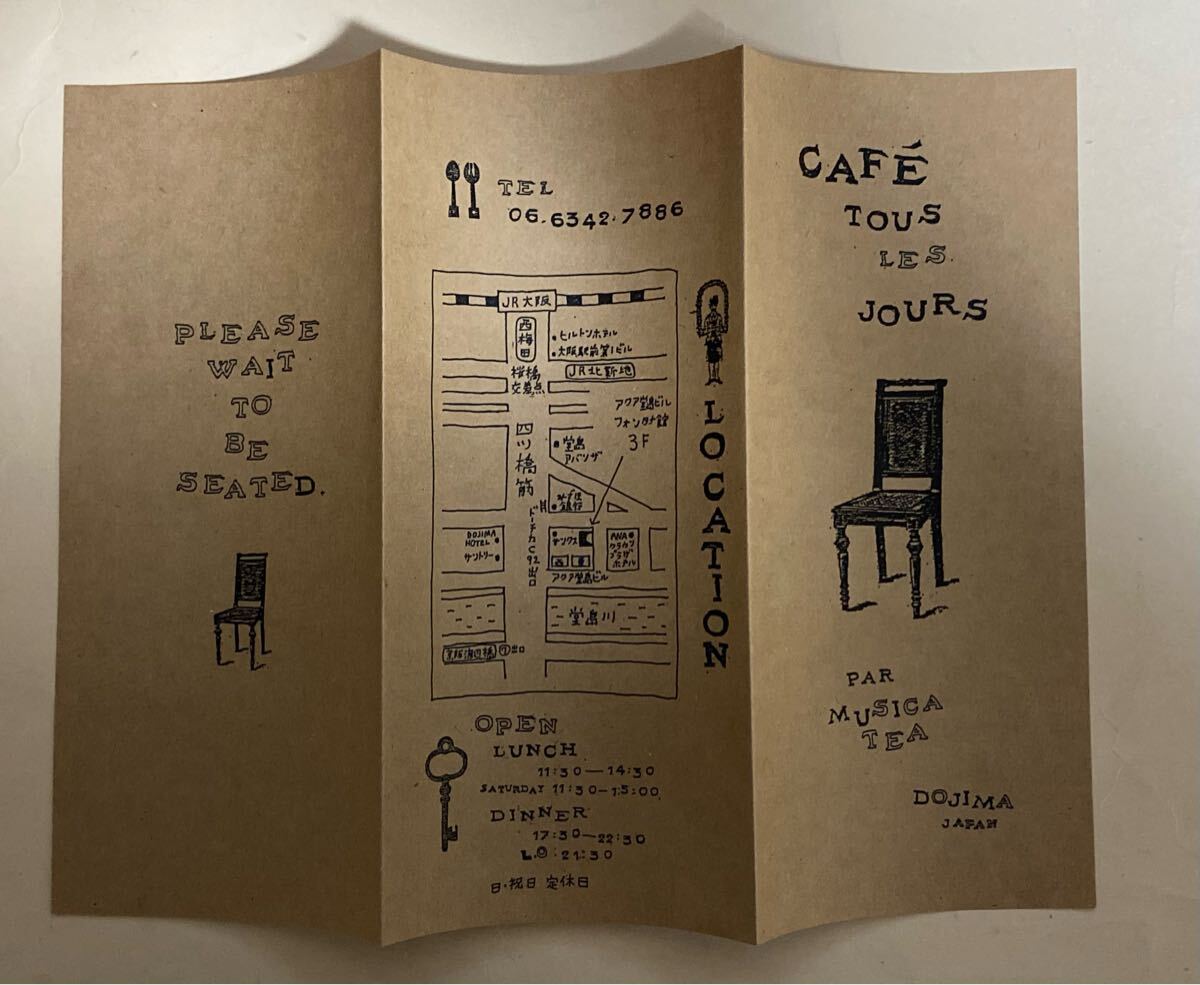 PLEASE
WAIT
TO
BE
SEATED.
TEL
06.6342.7886
JR大阪
西梅田
・ヒルトンホテル
・大阪駅前第1ビル
桜橋
交差点
JR北新地
アクア堂島ビル
フォンタナ館
3F
四ツ橋筋
・堂島
アバンザ
みずほ
銀行
ドーチカC92出口
DOJIMA
HOTEL
サントリー
サンクス
ANA
クラウン
プラザ
ホテル
アクア堂島ビル
堂島川
京阪渡辺橋 ⑦出口
LOCATION
OPEN
LUNCH
11:30—14:30
SATURDAY 11:30—15:00
DINNER
17:30—22:30
L.O:21:30
日・祝日 定休日
CAFÉ
TOUS
LES
JOURS
PAR
MUSICA
TEA
DOJIMA
JAPAN